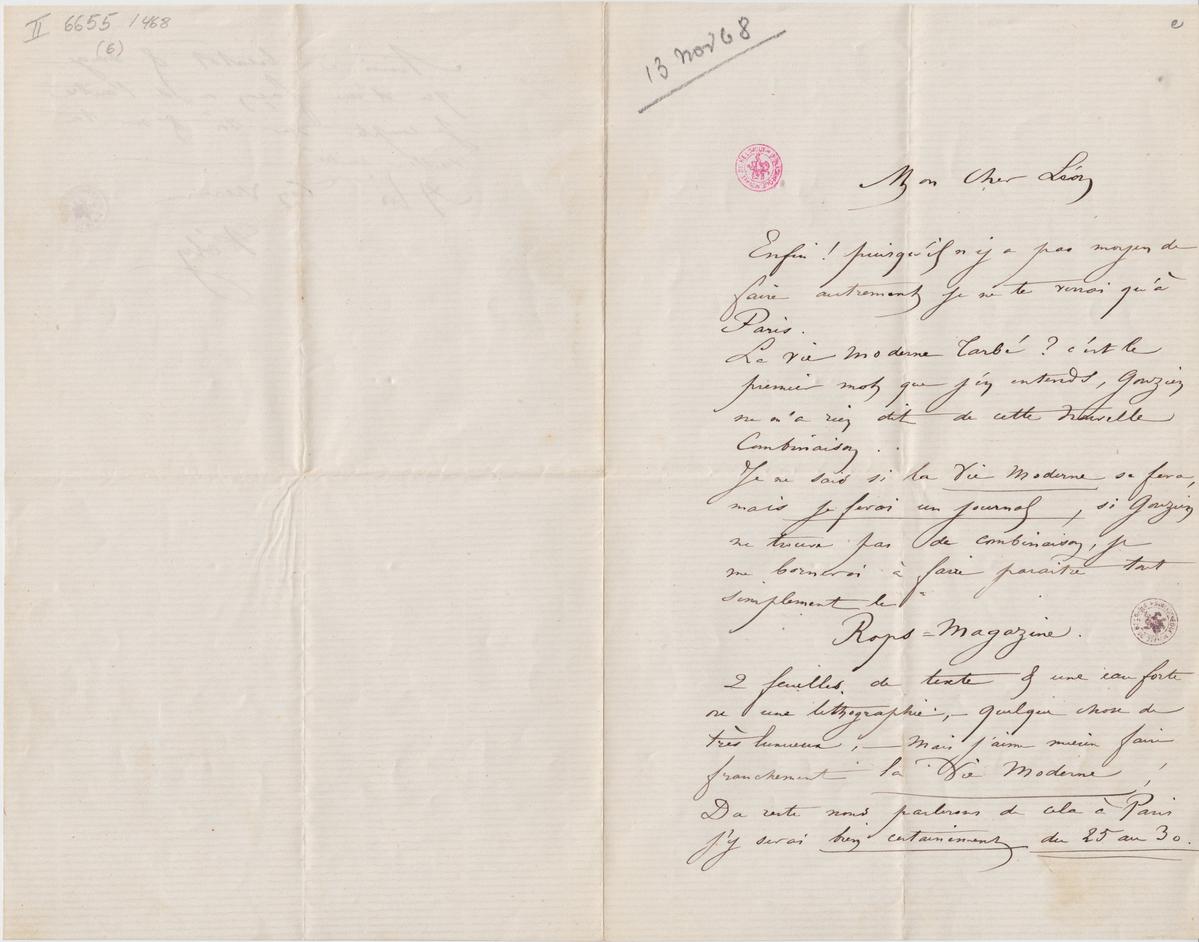 II 6655 /468
(6)
e
13 nov 68
Mon Cher Léon
Enfin ! puisqu'il n'y a pas moyen de
faire autrement je ne te verrai qu'à
Paris.
La Vie Moderne Tarbé ? c'est le
premier mot que j'en entends, Gouzien
ne m'a rien dit de cette nouvelle
Combinaison . .
Je ne sais si la Vie Moderne se fera,
mais je ferai un journal, si Gouzien
ne trouve pas de combinaison, je
me bornerai à faire paraître tout
simplement le
Rops=Magazine.
2 feuilles de texte & une eau forte
ou une lithographie, – quelque chose de
très luxueux, – Mais j'aime mieux faire
franchement la Vie Moderne !
Du reste nous parlerons de cela à Paris
j'y serai bien certainement du 25 au 30.